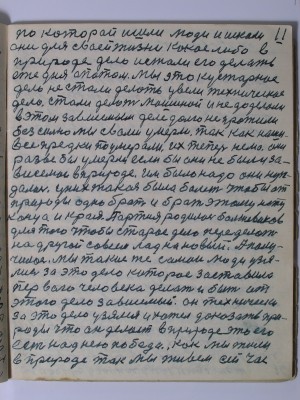 по которай ишли люди и искали 11
они для своей жизни какое либо в
природе дело и стали его делать
Мы это кустарное
дело не стали делать увели техническое
дело, стали делат машиной и не
в этом зависимым деле долго не
без силию мы свали умерли, так как наши
все предки поумерали, их теперь нема, они
разве бы умерли если бы они не были за-
висемы в природе, им было надо они нуж-
дались, у них такая была болезт чтобы от
природы одно брат и брат этому нету
конца и края. Партия родилас болшевиков
для того чтобы старое дело переделат
на другой совсем лад на новый. А полу-
чилос. Мы такие же самые люди узя-
лис за это дело которое заставило
первого человека делат и быт от
этого дело зависемый. он технически
за это дело узялся и хотел доказать при-
роды что он делает в природе это его
есть на днею победа. Как мы жили
в природе так мы живем сей час